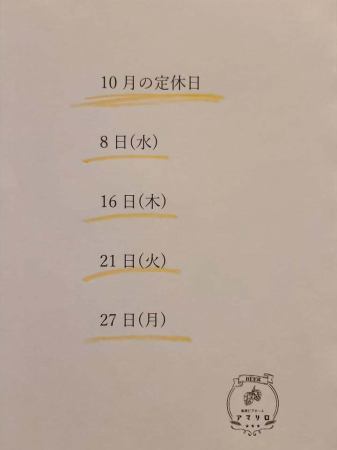 10月の定休日
8日(水)
16日(木)
21日(火)
27日(月)
BEER
アマリロ